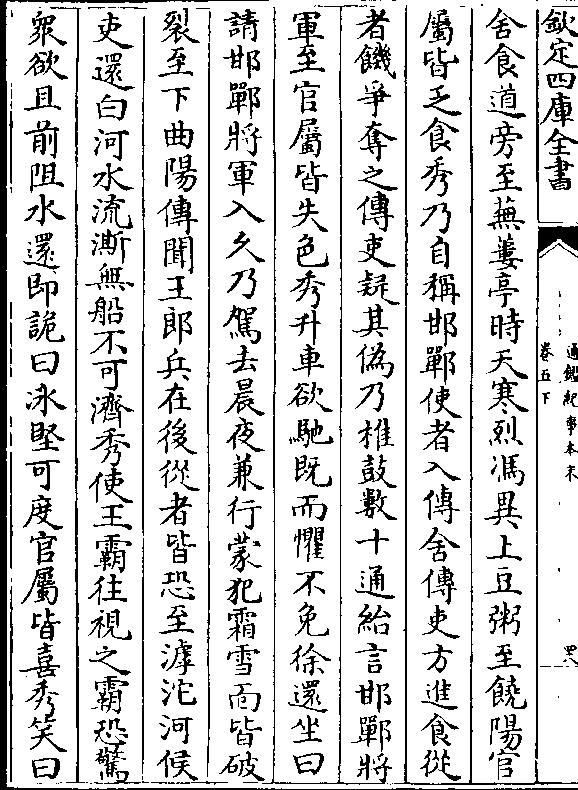 欽定四庫全書
通鑑紀事本末
卷五下
舍食道旁至蕪蔞亭時天寒烈馮異上豆粥至饒陽官
屬皆乏食秀乃自稱邯鄲使者入傳舍傳吏方進食從
者饑爭奪之傳吏疑其偽乃椎鼓數十通紿言邯鄲將
軍至官屬皆失色秀升車欲馳既而懼不免徐還坐曰
請邯鄲將軍入久乃駕去晨夜兼行蒙犯霜雪面皆破
裂至下曲陽傳聞王郎兵在後從者皆恐至滹沱河候
吏還白河水流澌無船不可濟秀使王霸往視之霸恐驚
衆欲且前阻水還即詭曰冰堅可度官屬皆喜秀笑曰